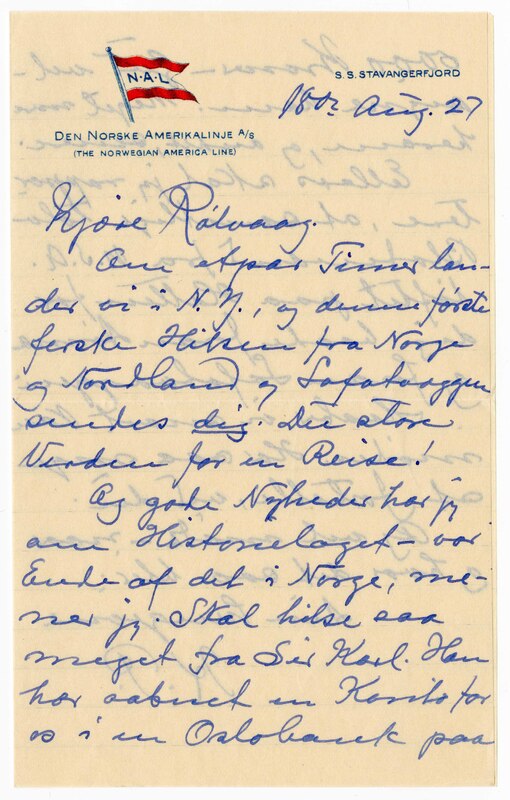 N·A·L
S. S. STAVANGERFJORD
DEN NORSKE AMERIKALINJE A/S
(THE NORWEGIAN AMERICA LINE)
18de Aug. 27
Kjære Rølvaag.
Om etpar Timer lan-
der vi i N. Y., og denne første
ferske Hilsen fra Norge
og Nordland og Lofotvaggen
sendes dig! Du store
Verden for en Reise!
Og gode Nyheder har jeg
om Historielaget – vor
Ende af det i Norge, me-
ner jeg. Skal hilse saa
meget fra Sir Karl. Han
har aabnet en Konto for
os i en Oslobank paa